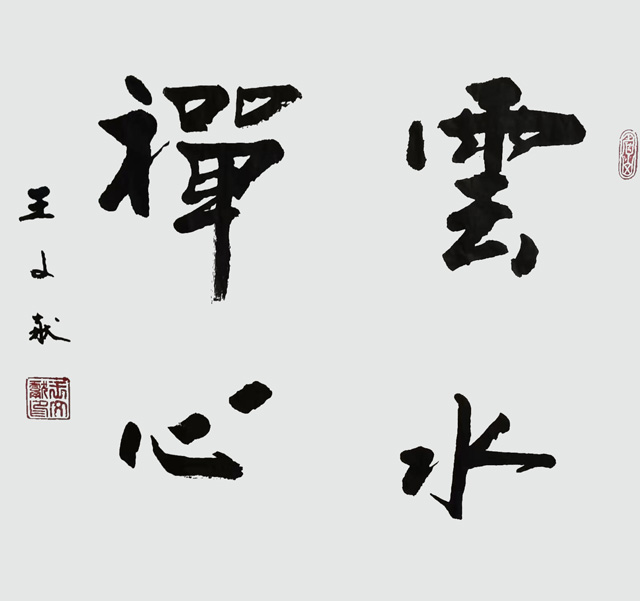 雲水
禪心
王文献